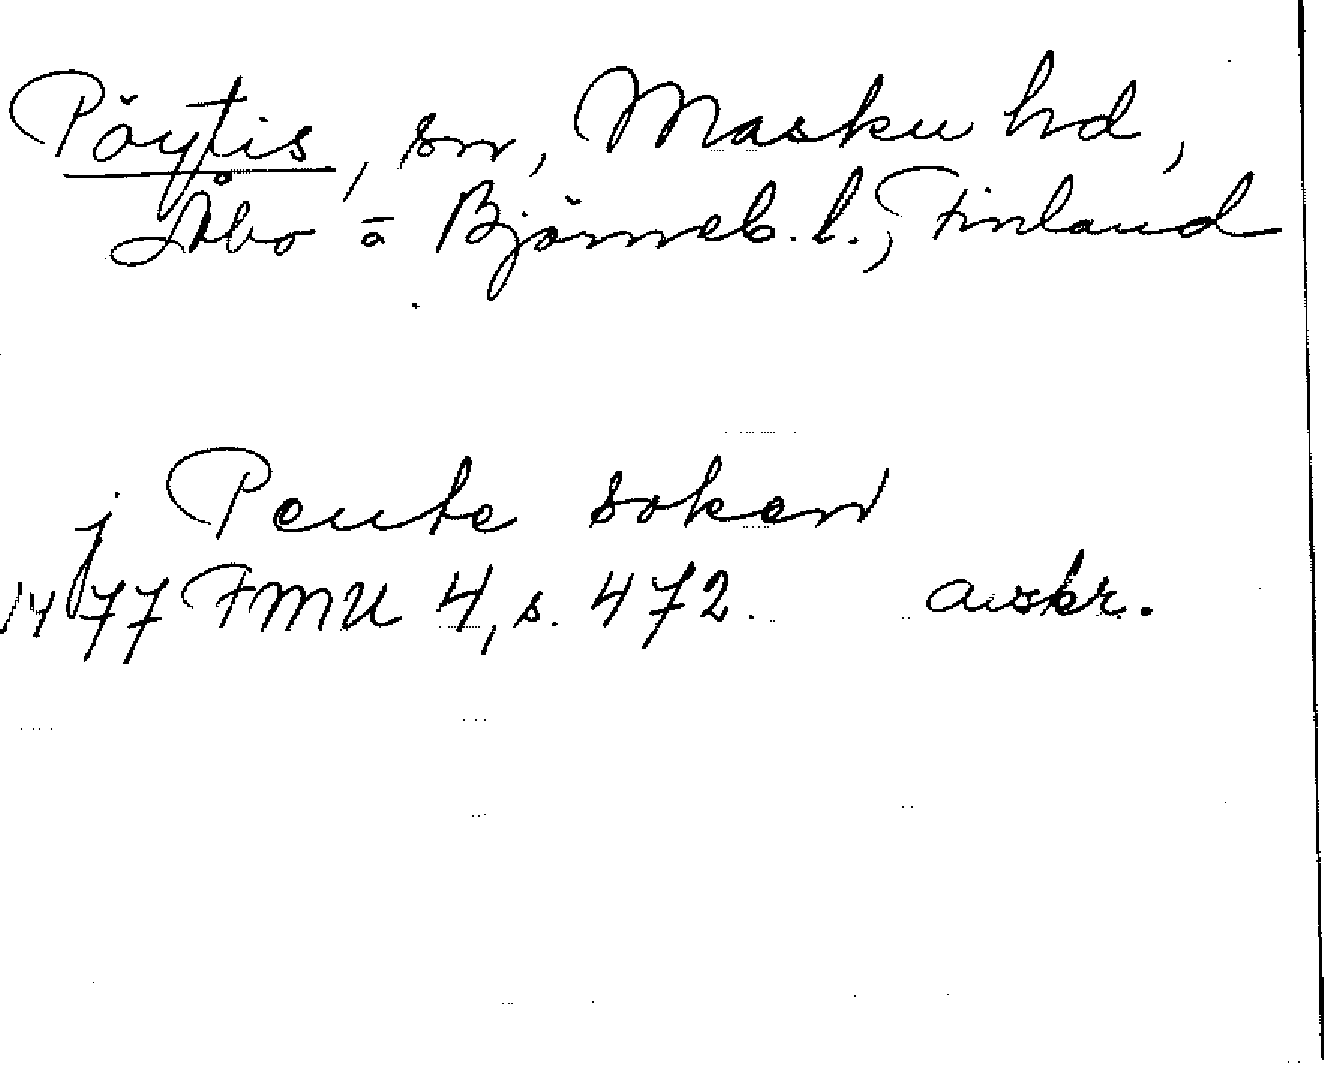 Pöytis, sn, Masku hd,
Åbo o Björneb. l., Finland
j Peute soken
1477 FMU 4, s. 472. avskr.